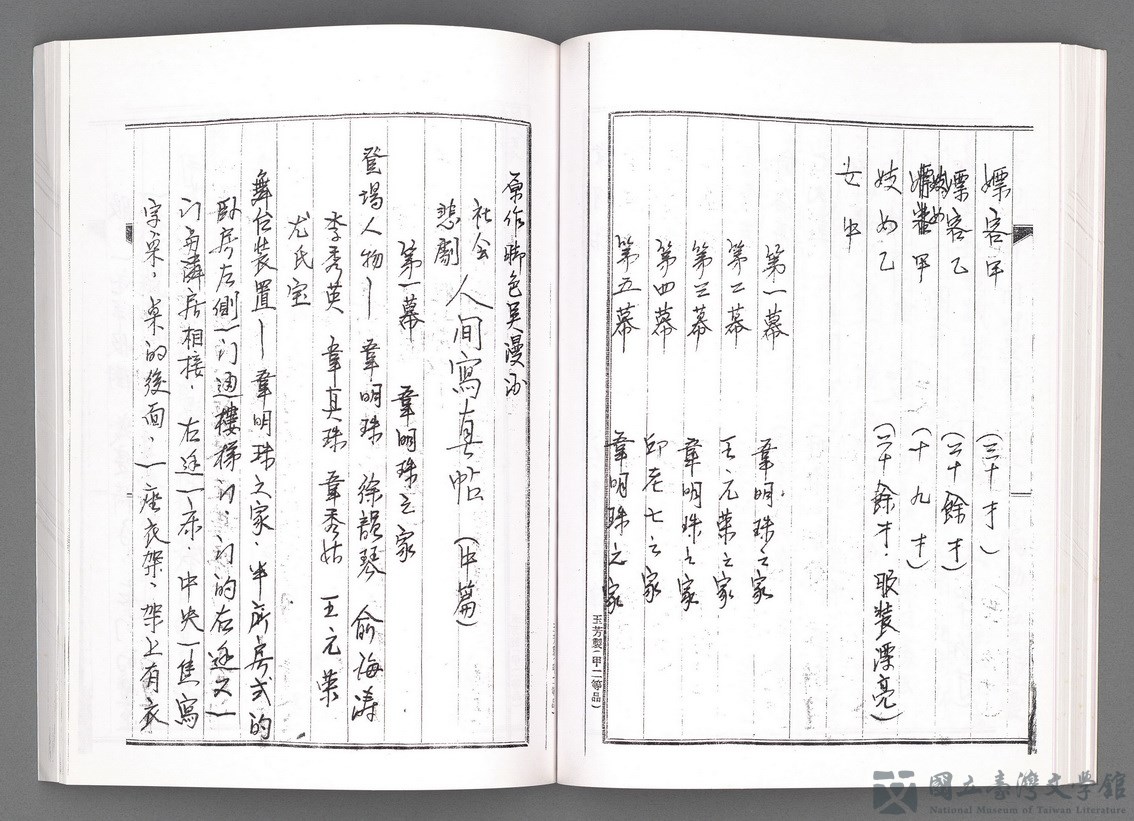 嫖客甲 (三十才)
嫖客乙 (二十餘才)
妓女甲 (十九才)
妓女乙 (二十餘才．服裝漂亮)
女中
第一幕 韋明珠之家
第二幕 王元榮之家
第三幕 韋明珠之家
第四幕 邱老七之家
第五幕 韋明珠之家
玉芳製(甲二等品)
原作脚色吳漫沙
社会
悲劇 人间寫真帖 (中篇)
第一幕 韋明珠之家
登場人物— 韋明珠 徐韻琴 俞海濤
李秀英 韋真珠 韋秀姑 王元荣
尤氏宝
舞台裝置— 韋明珠之家．半新房式的
卧房左側一门通樓梯门．门的右边又一
门与隣居相接．右边一床．中央一售寫
字桌．桌的後面．一座衣架．架上有衣
國立臺灣文學館
National Museum of Taiwan Literature